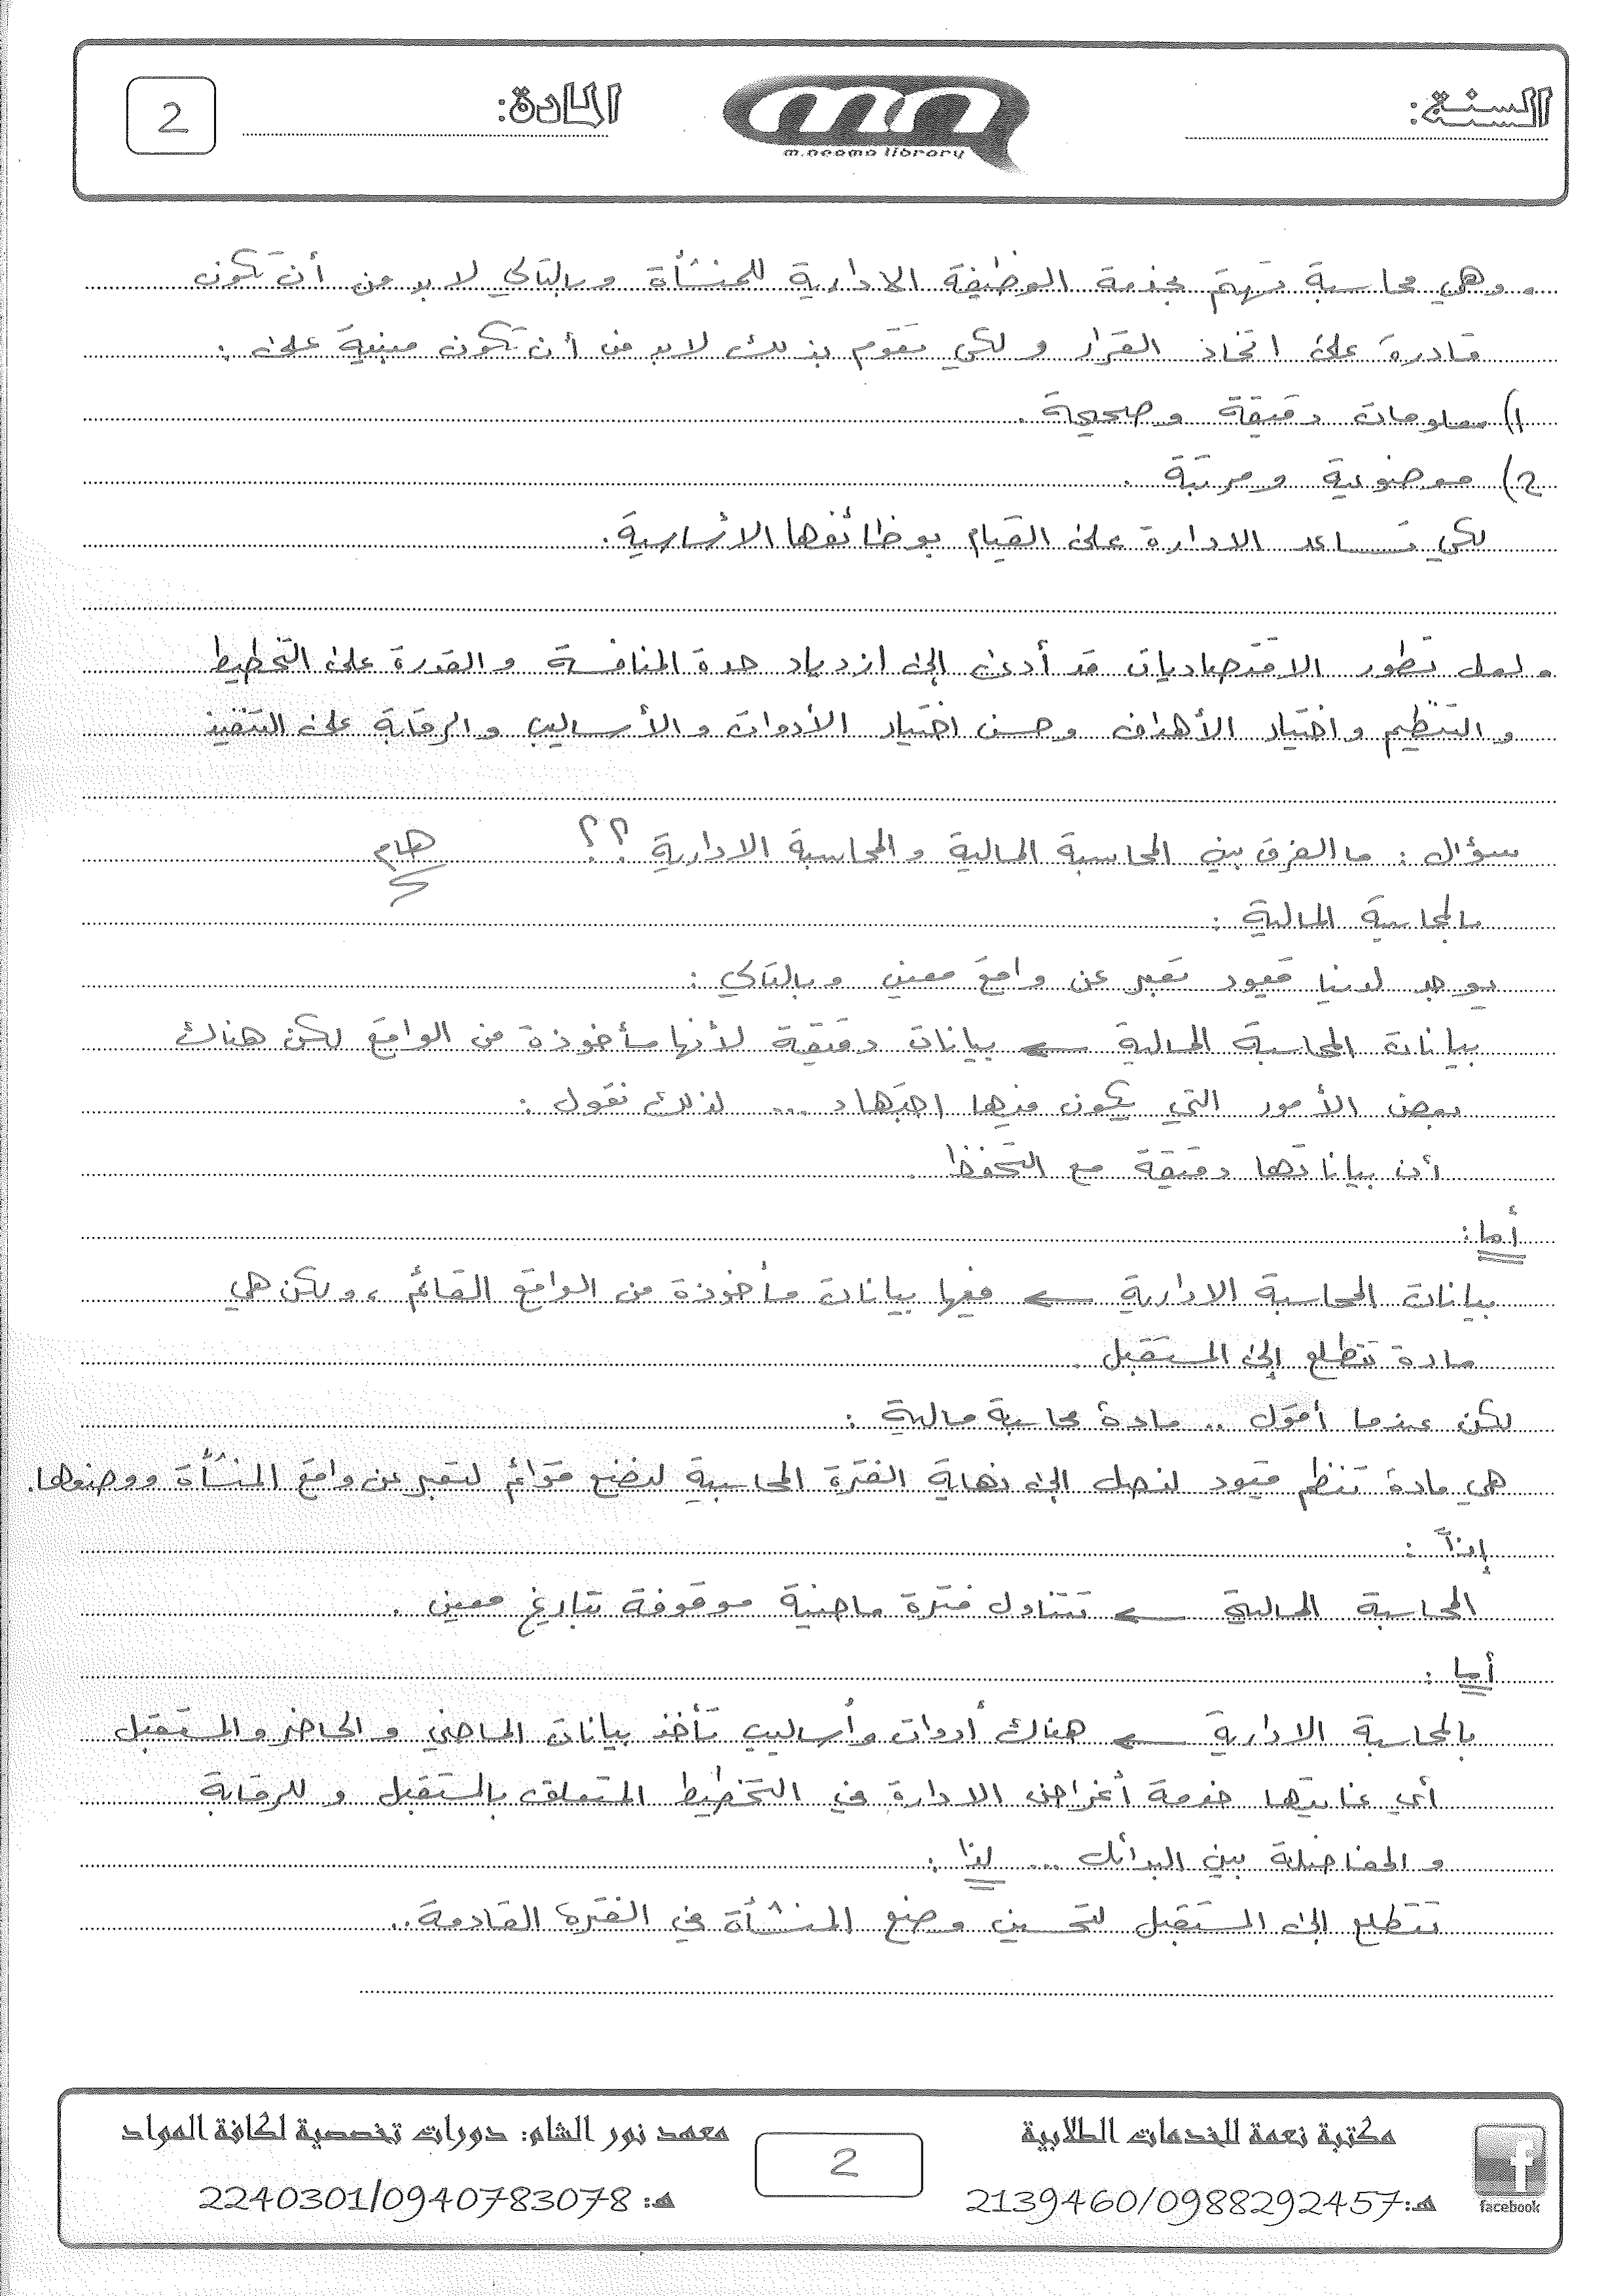 السنة:
m.neama library
المادة:
2
. وهي محاسبة تهتم بخدمة الوظيفة الادارية للمنشأة وبالتالي لا بد من أن تكون
قادرة على اتخاذ القرار و لكي تقوم بذلك لابد من أن تكون مبنية على :
1) معلومات دقيقة وصحيحة .
2) موضوعية ومرتبة .
لكي تساعد الادارة على القيام بوظائفها الأساسية .
. ولعل تطور الاقتصاديات قد أدى إلى ازدياد حدة المنافسة والقدرة على التخطيط
و التنظيم واختيار الأهداف وحسن اختيار الأدوات والأساليب والرقابة على التنفيذ
سؤال : ما الفرق بين المحاسبة المالية والمحاسبة الادارية ؟؟ هام
بالمحاسبة المالية :
يوجد لدينا قيود تعبر عن واقع معين وبالتالي :
بيانات المحاسبة المالية ← بيانات دقيقة لأنها مأخوذة من الواقع لكن هناك
بعض الأمور التي يكون فيها اجتهاد ... لذلك نقول :
أن بياناتها دقيقة مع التحفظ .
أما :
بيانات المحاسبة الادارية ← ففيها بيانات مأخوذة من الواقع القائم ، ولكن هي
مادة تتطلع إلى المستقبل .
لكن عندما أقول .. مادة محاسبة مالية :
هي مادة تنظم قيود لنصل إلى نهاية الفترة المحاسبية لنضع قوائم لتعبر عن واقع المنشأة ووضعها .
إذاً :
المحاسبة المالية ← تتناول فترة ماضية موقوفة بتاريخ معين .
أما :
بالمحاسبة الادارية ← هناك أدوات وأساليب تأخذ بيانات الماضي و الحاضر والمستقبل
أي غايتها خدمة أغراض الادارة في التخطيط المتعلق بالمستقبل و للرقابة
و المفاضلة بين البدائل ... لذا :
تتطلع إلى المستقبل لتحسين وضع المنشأة في الفترة القادمة ..
مكتبة نعمة للخدمات الطلابية
هـ: 2139460/0988292457
facebook
2
معهد نور الشام: دورات تخصصية لكافة المواد
هـ: 2240301/0940783078